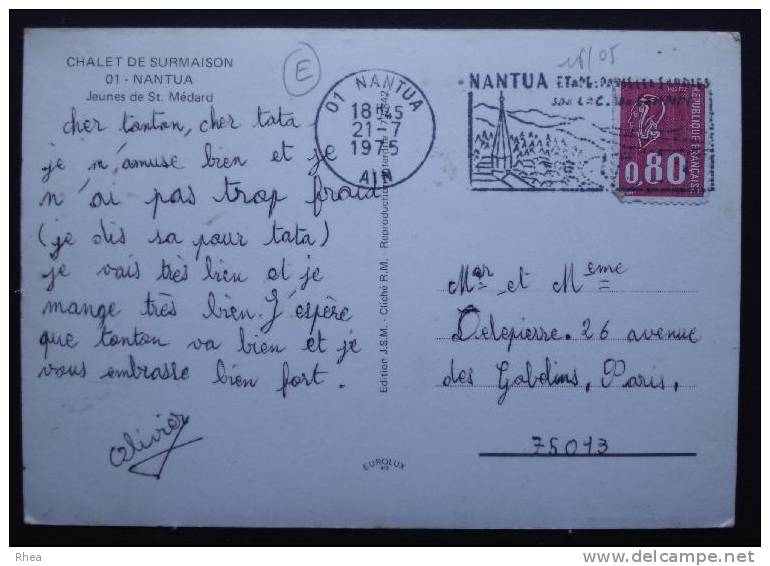 CHALET DE SURMAISON
01 - NANTUA
Jeunes de St. Médard
cher tonton, cher tata
je m'amuse bien et je
n'ai pas trop froid
(je dis sa pour tata)
je vais très bien et je
mange très bien. J'espère
que tonton va bien et je
vous embrasse bien fort.
Olivier
E
01 NANTUA
18H45
21-7
1975
AIN
Edition J.S.M. - Cliché R.M. - Reproduction interdite
EUROLUX
18/05
NANTUA
SON LAC
REPUBLIQUE FRANÇAISE
0,80
Mgr et Meme
Delepierre. 26 avenue
des Gobelins, Paris,
75013
Rhea
www.delcampe.net